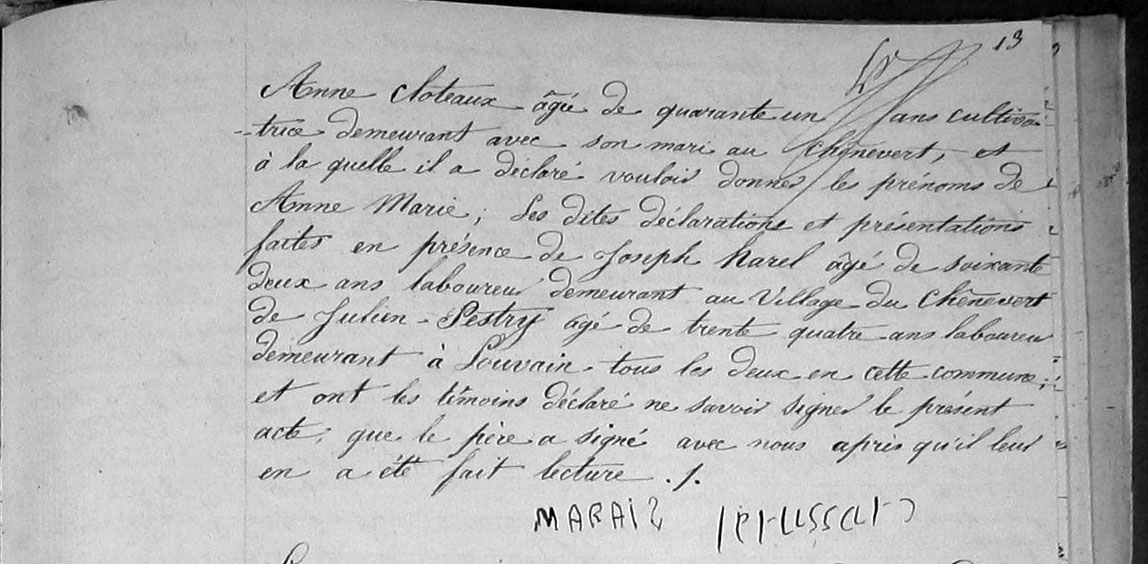 13
Anne Cloteaux âgée de quarante un ans cultiva
-trice demeurant avec son mari au Chênevert, et
à la quelle il a déclaré vouloir donner les prénoms de
Anne Marie; Les dites déclarations et présentations
faites en présence de Joseph Harel âgé de soixante
deux ans laboureur demeurant au Village du Chênevert
de Julien Pestry agé de trente quatre ans laboureur
demeurant à Louvain tous les deux en cette commune;
et ont les témoins déclaré ne savoir signer le présent
acte; que le père a signé avec nous après qu'il leur
en a été fait lecture ./.
MARAIS